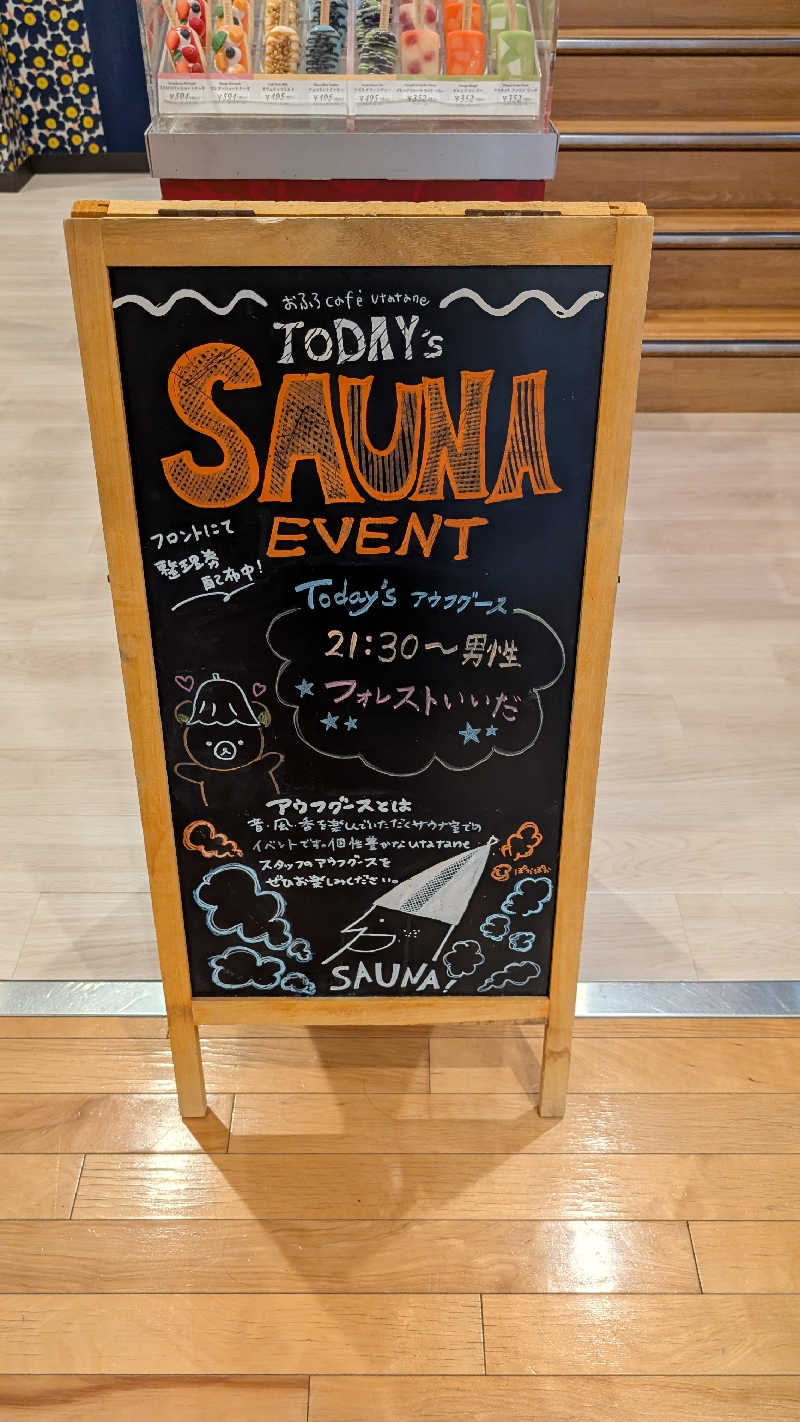 ¥594
¥594
¥495
¥495
¥495
¥352
¥352
¥352
おふろ café utatane
TODAY's
SAUNA
EVENT
フロントにて
整理券
配布中!
Today's アウフグース
21:30〜男性
フォレストいいだ
アウフグースとは
音・風・香を楽しんでいただくサウナ室での
イベントです。個性豊かなutatane
スタッフのアウフグースを
ぜひお楽しみください。
ぽかぽか
SAUNA!